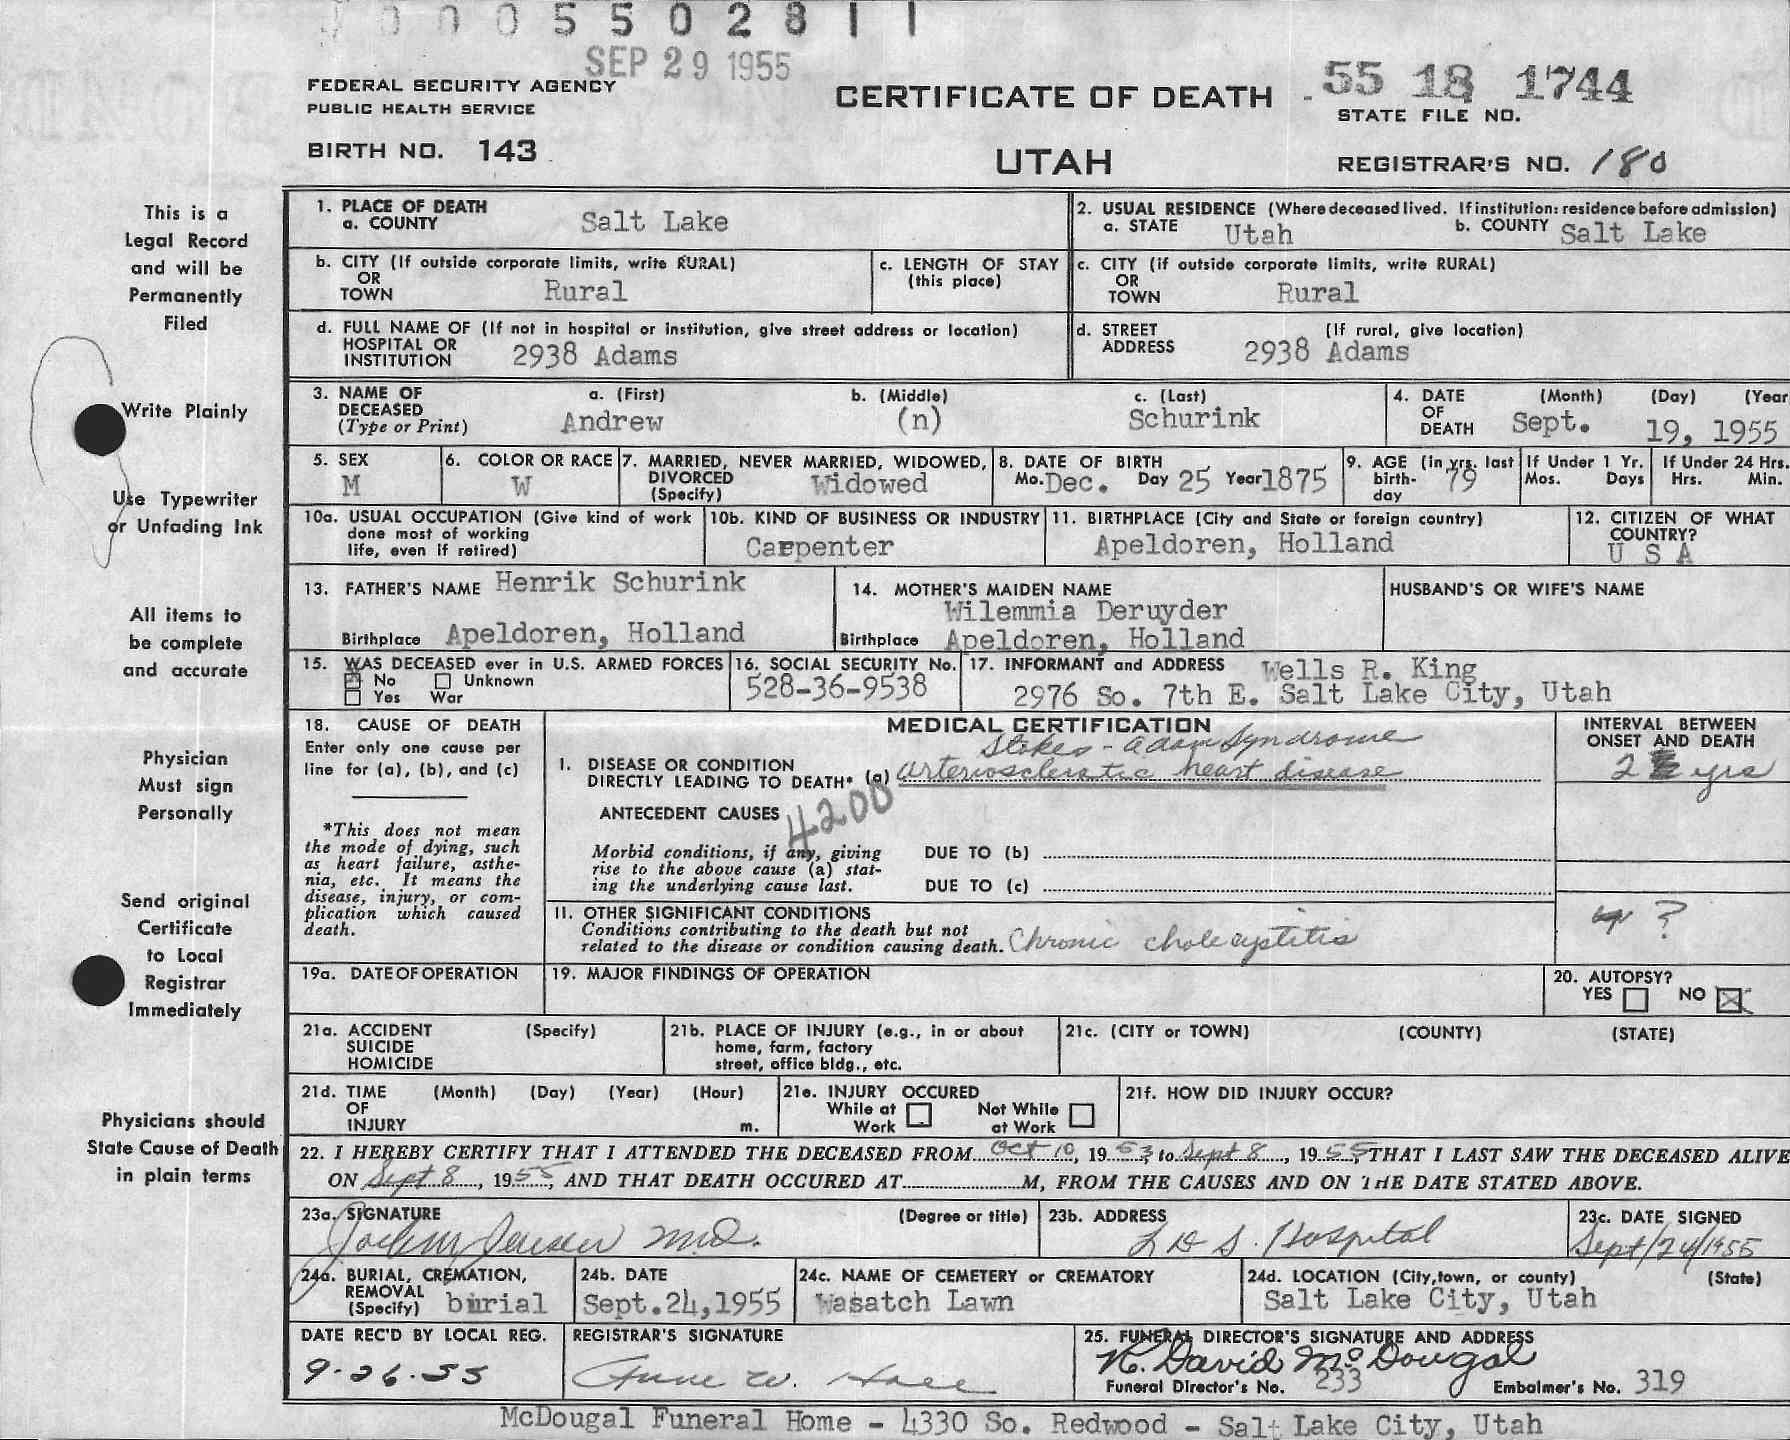 0 0 0 5 5 0 2 8 1 1
SEP 29 1955
FEDERAL SECURITY AGENCY
PUBLIC HEALTH SERVICE
BIRTH NO. 143
CERTIFICATE OF DEATH
UTAH
55 18 1744
STATE FILE NO.
REGISTRAR'S NO. 180
This is a
Legal Record
and will be
Permanently
Filed
Write Plainly
Use Typewriter
or Unfading Ink
All items to
be complete
and accurate
Physician
Must sign
Personally
Send original
Certificate
to Local
Registrar
Immediately
Physicians should
State Cause of Death
in plain terms
1. PLACE OF DEATH
a. COUNTY Salt Lake
2. USUAL RESIDENCE (Where deceased lived. If institution: residence before admission)
a. STATE Utah b. COUNTY Salt Lake
b. CITY (If outside corporate limits, write RURAL)
OR
TOWN Rural
c. LENGTH OF STAY
(this place)
c. CITY (if outside corporate limits, write RURAL)
OR
TOWN Rural
d. FULL NAME OF (If not in hospital or institution, give street address or location)
HOSPITAL OR
INSTITUTION 2938 Adams
d. STREET (If rural, give location)
ADDRESS 2938 Adams
3. NAME OF a. (First) b. (Middle) c. (Last)
DECEASED
(Type or Print) Andrew (n) Schurink
4. DATE (Month) (Day) (Year
OF
DEATH Sept. 19, 1955
5. SEX
M
6. COLOR OR RACE
W
7. MARRIED, NEVER MARRIED, WIDOWED,
DIVORCED
(Specify) Widowed
8. DATE OF BIRTH
Mo. Dec. Day 25 Year 1875
9. AGE (in yrs. last
birth-
day 79
If Under 1 Yr.
Mos. Days
If Under 24 Hrs.
Hrs. Min.
10a. USUAL OCCUPATION (Give kind of work
done most of working
life, even if retired)
10b. KIND OF BUSINESS OR INDUSTRY
Carpenter
11. BIRTHPLACE (City and State or foreign country)
Apeldoren, Holland
12. CITIZEN OF WHAT
COUNTRY?
U S A
13. FATHER'S NAME Henrik Schurink
Birthplace Apeldoren, Holland
14. MOTHER'S MAIDEN NAME
Wilemmia Deruyder
Birthplace Apeldoren, Holland
HUSBAND'S OR WIFE'S NAME
15. WAS DECEASED ever in U.S. ARMED FORCES
No Unknown
Yes War
16. SOCIAL SECURITY No.
528-36-9538
17. INFORMANT and ADDRESS Wells R. King
2976 So. 7th E. Salt Lake City, Utah
18. CAUSE OF DEATH
Enter only one cause per
line for (a), (b), and (c)
*This does not mean
the mode of dying, such
as heart failure, asthe-
nia, etc. It means the
disease, injury, or com-
plication which caused
death.
MEDICAL CERTIFICATION
Stokes-Adam Syndrome
I. DISEASE OR CONDITION
DIRECTLY LEADING TO DEATH* (a) arteriosclerotic heart disease
ANTECEDENT CAUSES
4200
Morbid conditions, if any, giving
rise to the above cause (a) stat-
ing the underlying cause last.
DUE TO (b)
DUE TO (c)
INTERVAL BETWEEN
ONSET AND DEATH
2 yrs
II. OTHER SIGNIFICANT CONDITIONS
Conditions contributing to the death but not
related to the disease or condition causing death. Chronic cholecystitis
?
19a. DATE OF OPERATION
19. MAJOR FINDINGS OF OPERATION
20. AUTOPSY?
YES NO
21a. ACCIDENT (Specify)
SUICIDE
HOMICIDE
21b. PLACE OF INJURY (e.g., in or about
home, farm, factory
street, office bldg., etc.
21c. (CITY or TOWN) (COUNTY) (STATE)
21d. TIME (Month) (Day) (Year) (Hour)
OF
INJURY m.
21e. INJURY OCCURED
While at Work Not While at Work
21f. HOW DID INJURY OCCUR?
22. I HEREBY CERTIFY THAT I ATTENDED THE DECEASED FROM Oct 10, 1953, to Sept 8, 1955, THAT I LAST SAW THE DECEASED ALIVE
ON Sept 8, 1955, AND THAT DEATH OCCURED AT M, FROM THE CAUSES AND ON THE DATE STATED ABOVE.
23a. SIGNATURE (Degree or title)
M.D.
23b. ADDRESS
L D S. Hospital
23c. DATE SIGNED
Sept/24/1955
24a. BURIAL, CREMATION,
REMOVAL
(Specify) burial
24b. DATE
Sept.24,1955
24c. NAME OF CEMETERY or CREMATORY
Wasatch Lawn
24d. LOCATION (City, town, or county) (State)
Salt Lake City, Utah
DATE REC'D BY LOCAL REG.
9-26-55
REGISTRAR'S SIGNATURE
25. FUNERAL DIRECTOR'S SIGNATURE AND ADDRESS
K. David McDougal
Funeral Director's No. 233 Embalmer's No. 319
McDougal Funeral Home - 4330 So. Redwood - Salt Lake City, Utah